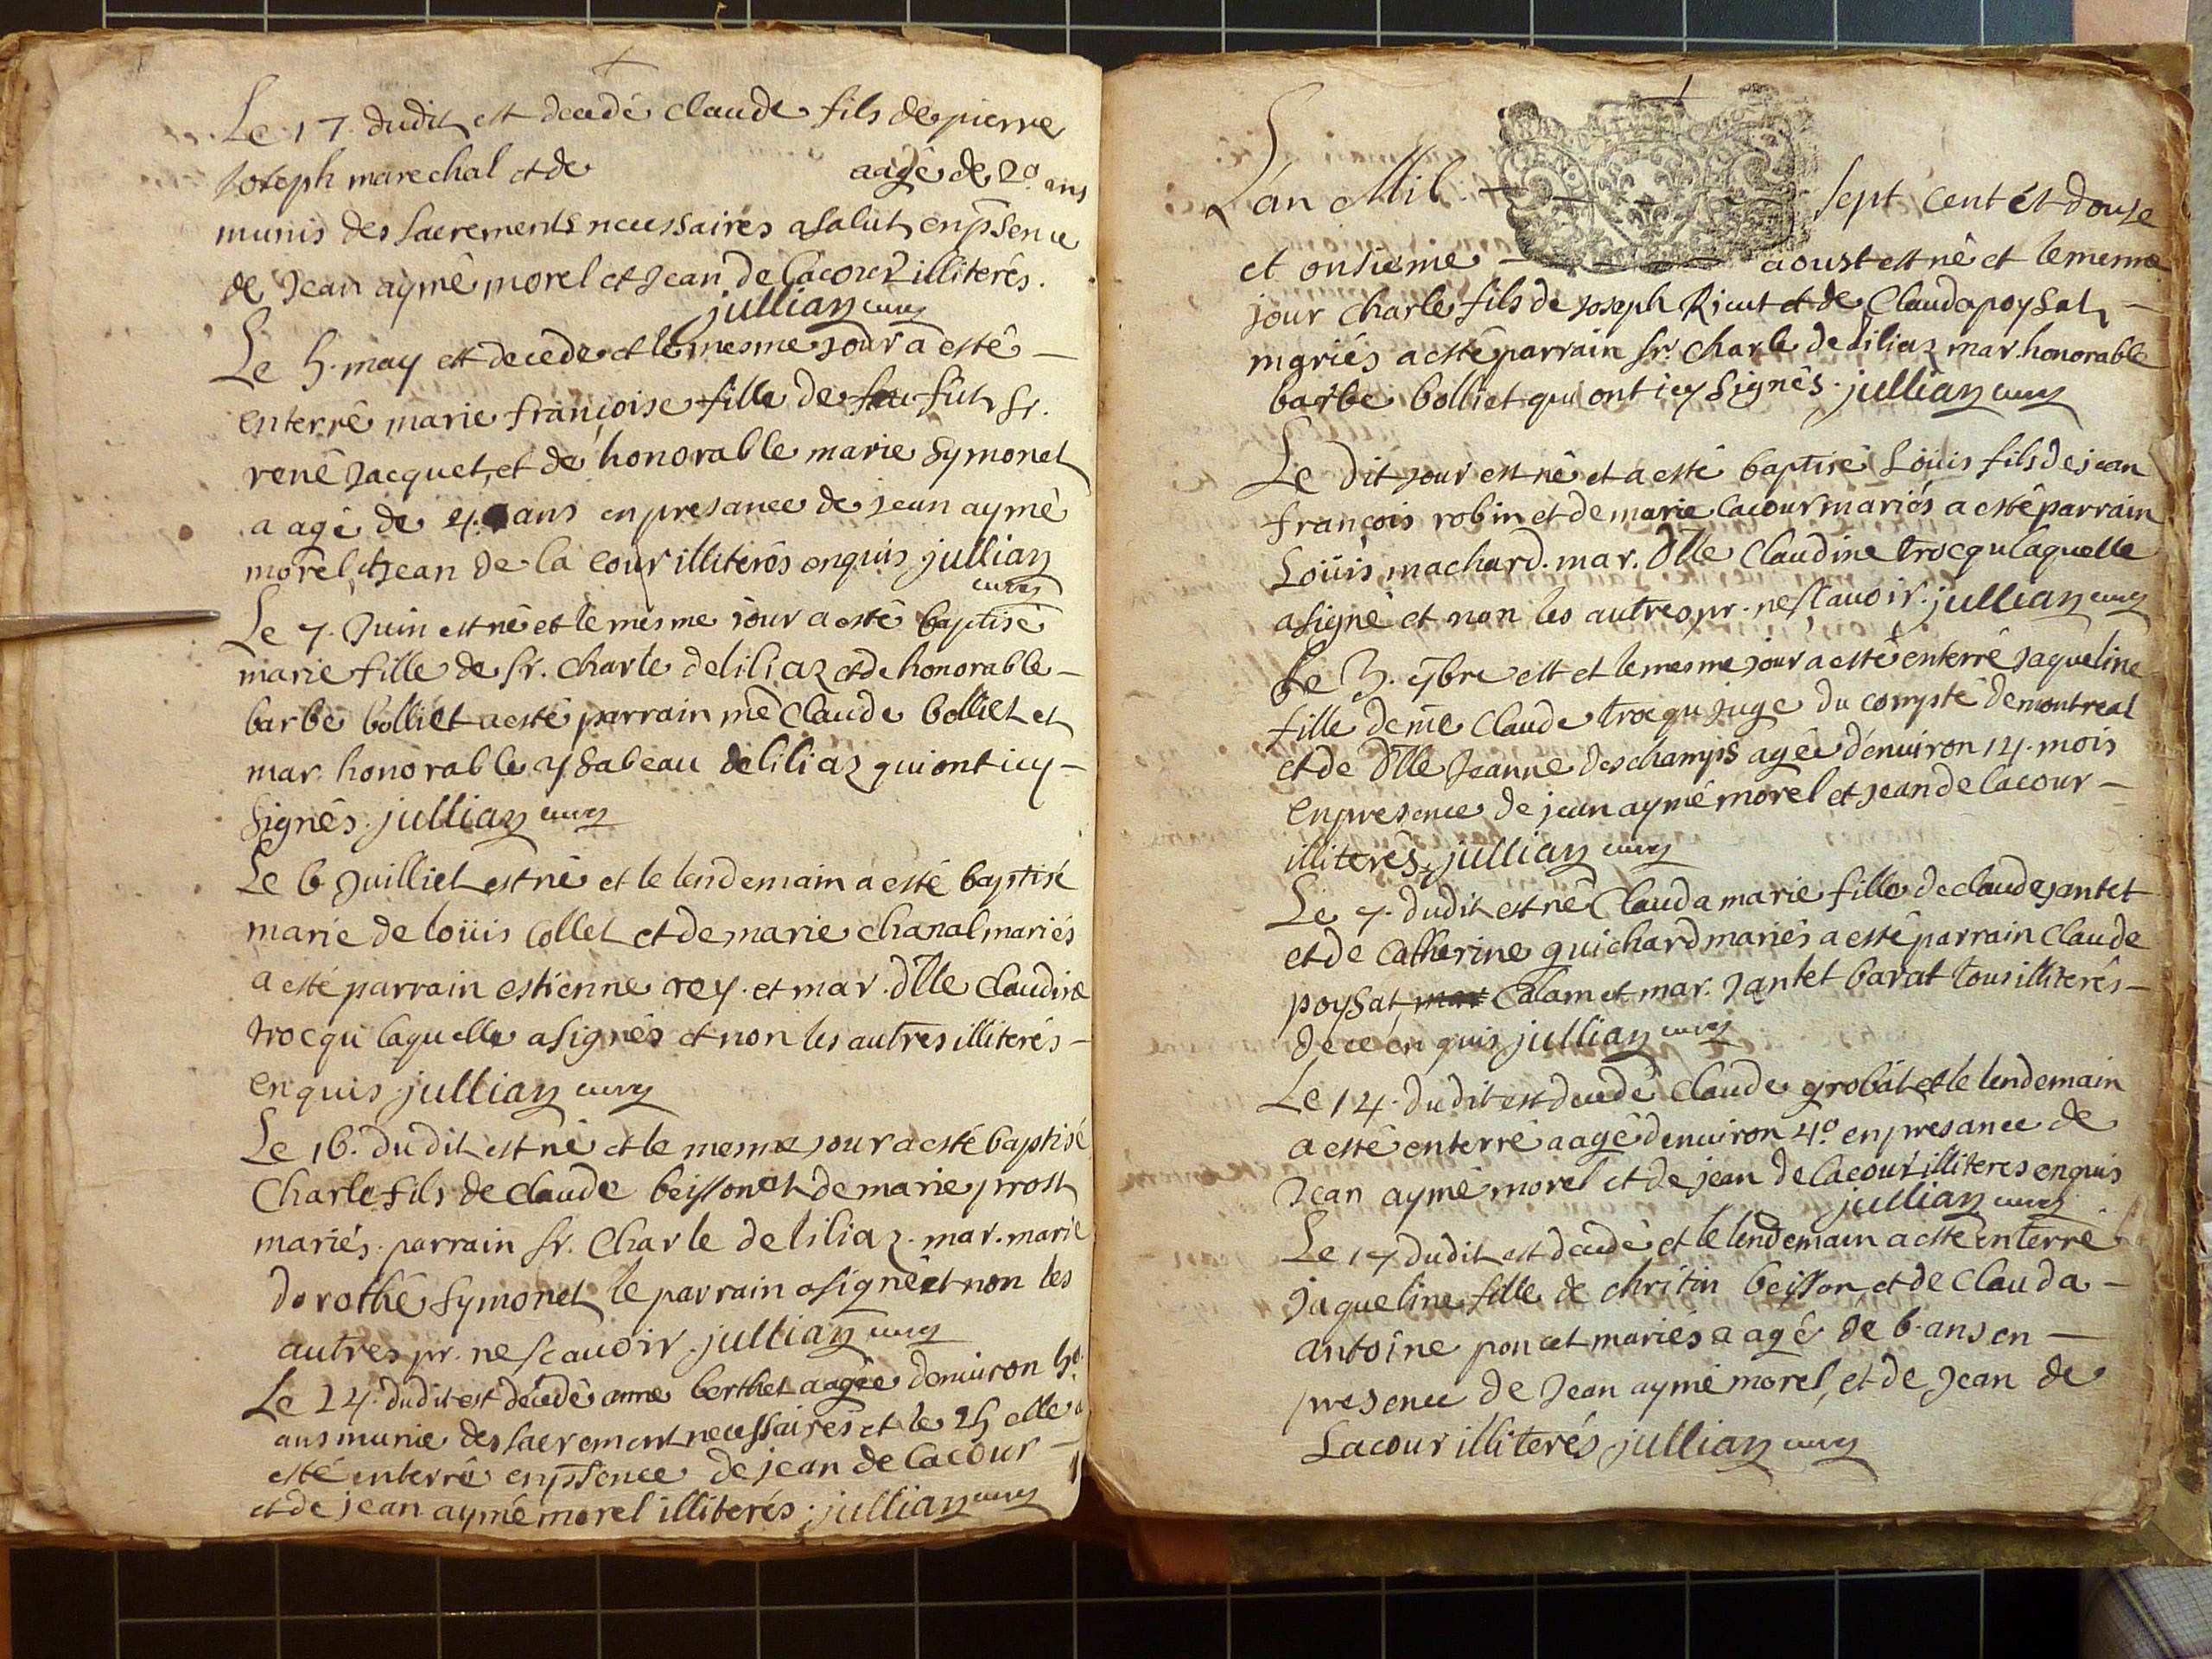 Le 17 dudit est decedé claude fils de pierre
Joseph marechal et de aagé de 20 ans
munis des sacrements necessaires a salut en psence
de Jean aymé morel et Jean de lacour illiterés.
jullian curé
Le 5. may est decedé et le mesme jour a esté
enterré marie françoise fille de sr.
rené Jacquet, et de honorable marie symonet
aagé de 4. ans en presance de jean aymé
morel et Jean de la cour illiterés enquis jullian
curé
Le 7. Juin est né et le mesme jour a esté baptisé
marie fille de sr. charle deliliaz et de honorable
barbe bolliet a esté parrain me Claude bolliet et
mar. honorable ysabeau deliliaz qui ont icy
signés. jullian curé
Le 6 Juilliet est né et le lendemain a esté baptisé
marie de loüis Collet et de marie chanal mariés
a esté parrain estienne rey. et mar. dlle Claudine
trocqu laquelle a signés et non les autres illiterés
enquis. jullian curé
Le 16. dudit est né et le mesme jour a esté baptisé
Charle fils de Claude beysson et de marie prost
mariés. parrain sr. Charle deliliaz. mar. marie
dorothé symonet le parrain a signé et non les
autres pr. ne scavoir. jullian curé
Le 24. dudit est decedé anne berthet aagée denuiron 50
ans munie des sacrement necessaires et le 25 elle a
esté enterré en psence de jean de lacour
et de jean aymé morel illiterés. jullian curé
L'an Mil sept cent et douse
et onsieme aoust est né et le mesme
jour Charle fils de Joseph Ricut et de Clauda poysat
mariés a esté parrain sr. Charle deliliaz mar. honorable
barbe bolliet qui ont icy signés. jullian curé
Le dit jour est né et a esté baptisé Loüis fils de jean
françois robin et de marie lacour mariés a esté parrain
Loüis machard. mar. dlle Claudine trocqu laquelle
a signé et non les autres pr. ne scavoir. jullian curé
Le 3. 7bre est et le mesme jour a esté enterré Jaqueline
fille de me Claude trocqu juge du compté de montreal
et de dlle Jeanne deschamps agée d'enuiron 14. mois
en presence de jean aymé morel et jean de lacour
illiterés. jullian curé
Le 7. dudit est né Clauda marie fille de claude jantet
et de Catherine guichard mariés a esté parrain Claude
poysat, Calam et mar. Jantet barat tous illiterés
de ce enquis jullian curé
Le 14. dudit est decedé Claude grobat et le lendemain
a esté enterré aagé denuiron 40 en presance de
Jean aymé morel et de jean de lacour illiteres enquis
jullian curé
Le 17 dudit est decedé et le lendemain a esté enterré
Jaqueline fille de chritin beysson et de Clauda
antoine poncet mariés aagé de 6. ans en
presence de Jean aymé morel, et de Jean de
Lacour illiterés jullian curé